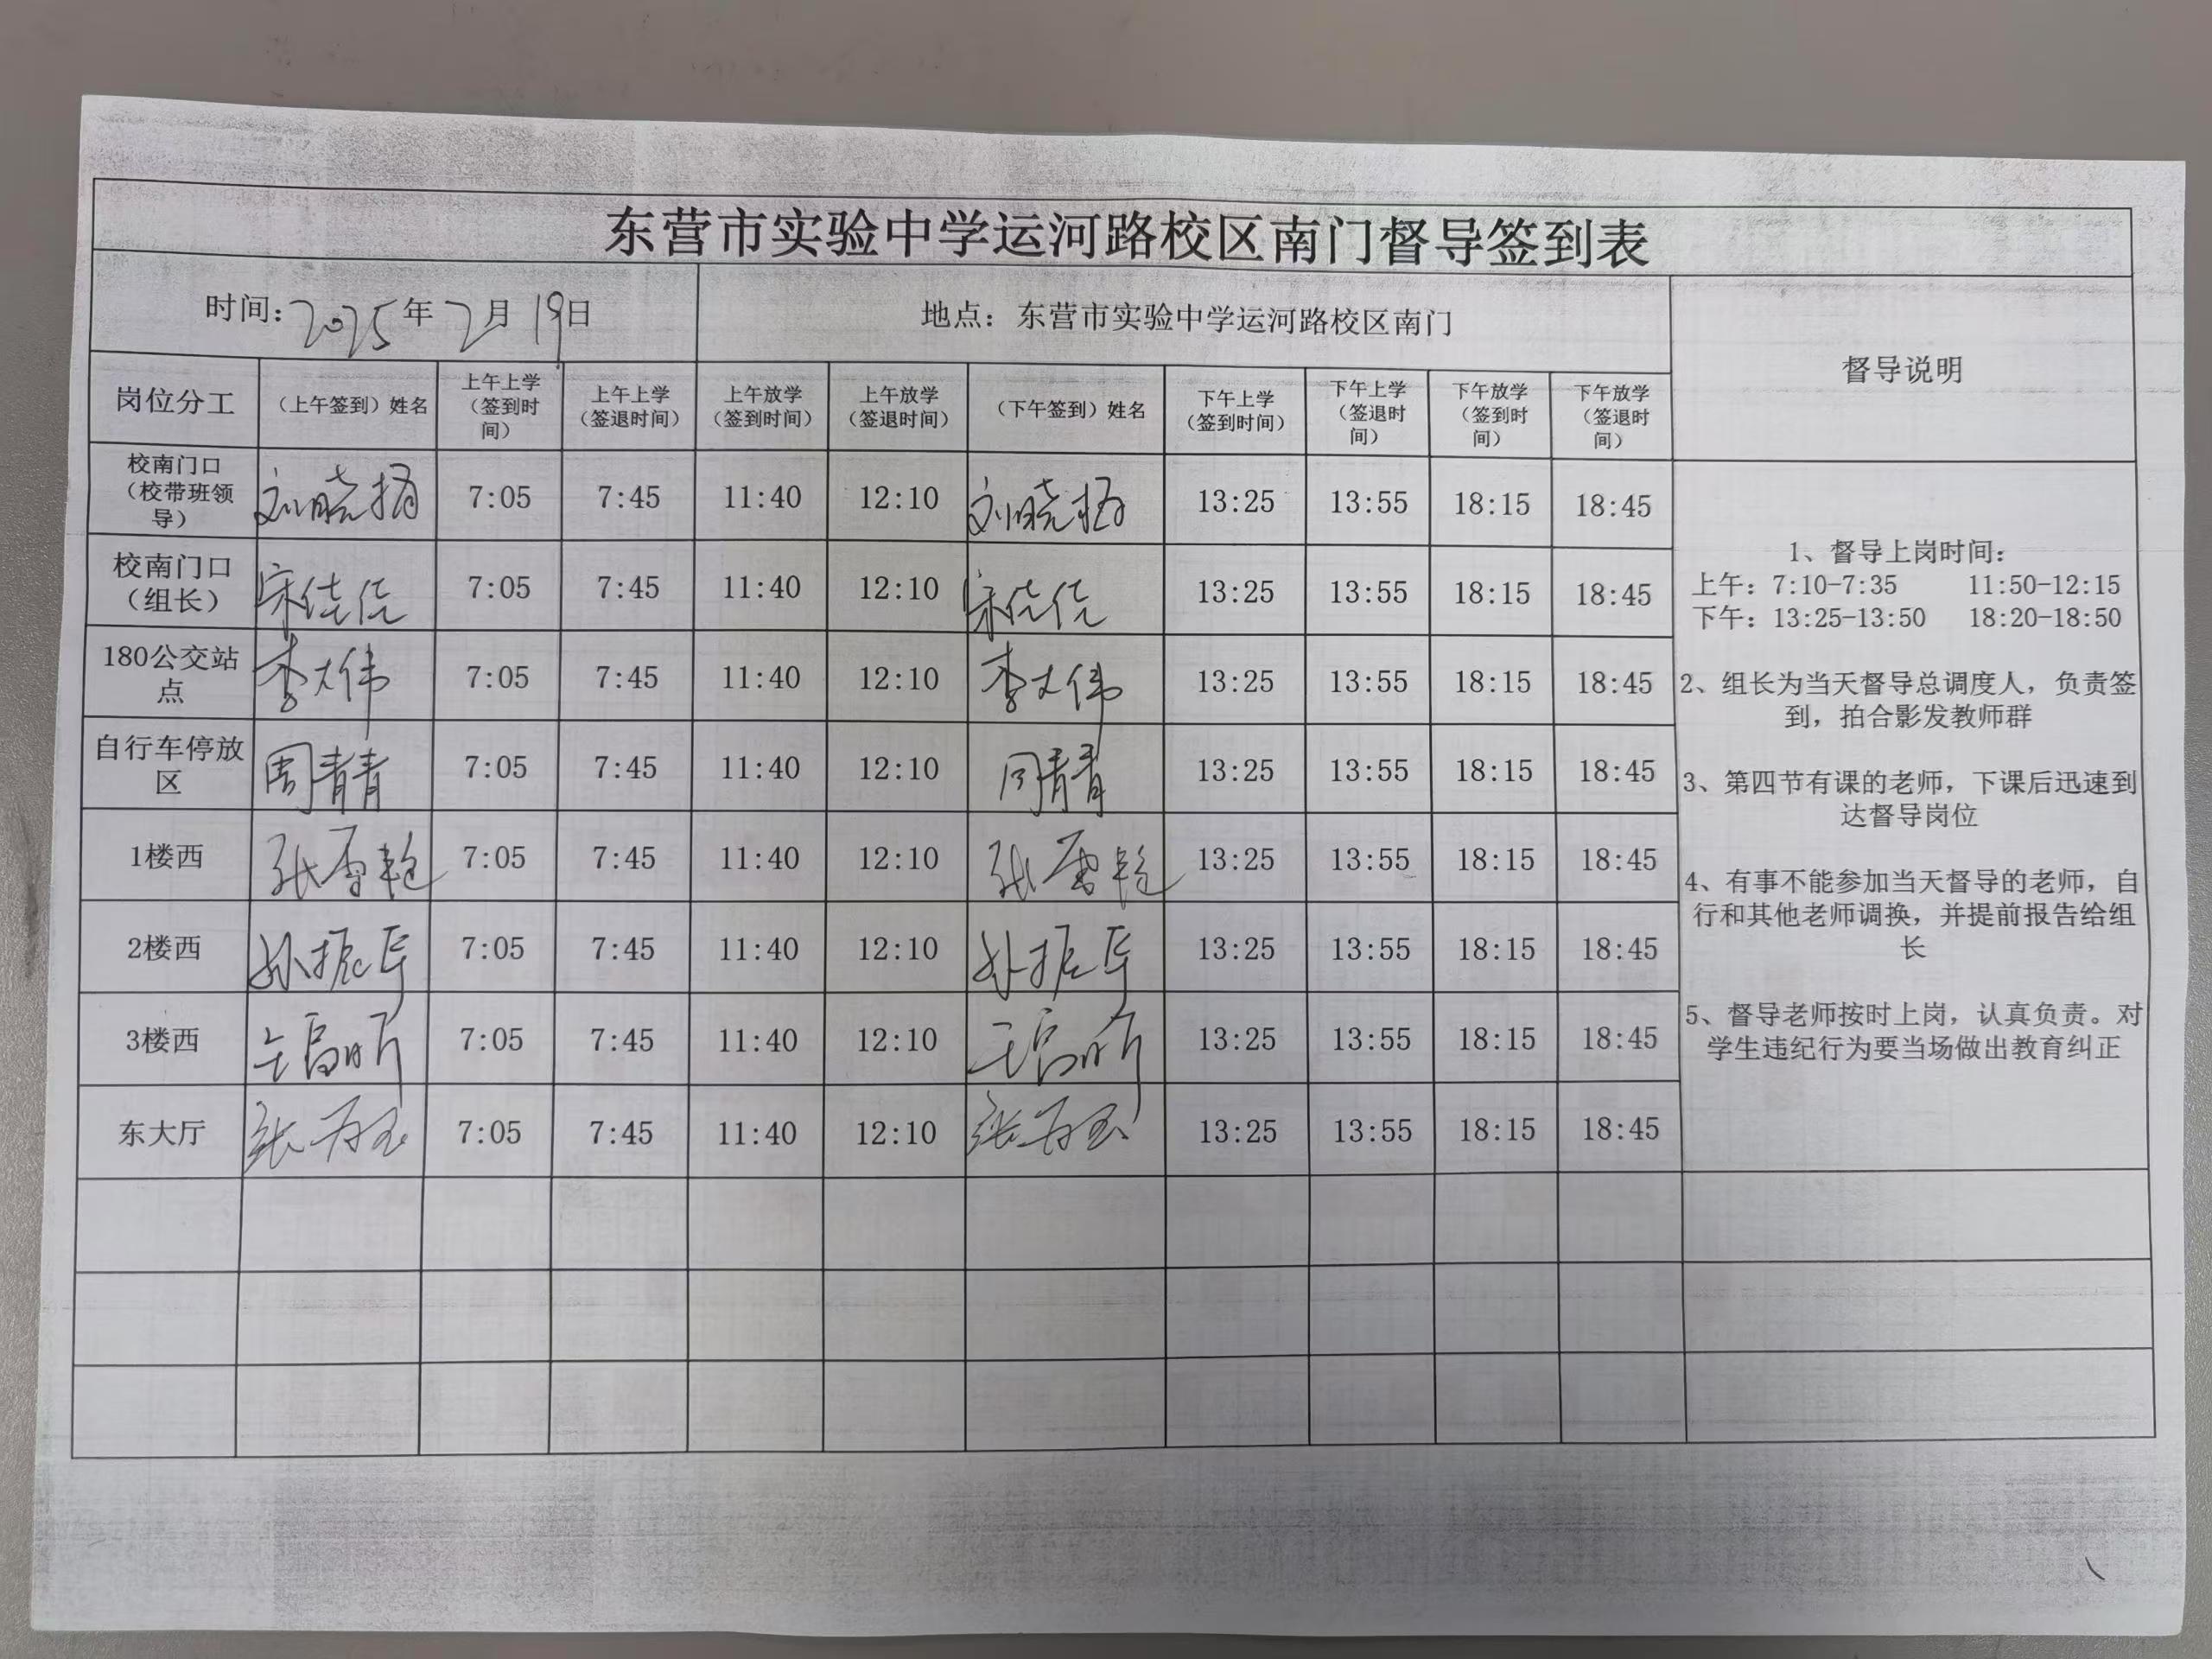 东营市实验中学运河路校区南门督导签到表
时间：2025年2月19日
地点：东营市实验中学运河路校区南门
督导说明
岗位分工
（上午签到）姓名
上午上学
（签到时
间）
上午上学
（签退时间）
上午放学
（签到时间）
上午放学
（签退时间）
（下午签到）姓名
下午上学
（签到时间）
下午上学
（签退时
间）
下午放学
（签到时
间）
下午放学
（签退时
间）
校南门口
（校带班领
导）
刘晓 7:05 7:45 11:40 12:10 刘晓 13:25 13:55 18:15 18:45
校南门口
（组长）
宋佳佳 7:05 7:45 11:40 12:10 宋佳佳 13:25 13:55 18:15 18:45
180公交站
点
李大伟 7:05 7:45 11:40 12:10 李大伟 13:25 13:55 18:15 18:45
自行车停放
区
周青青 7:05 7:45 11:40 12:10 周青青 13:25 13:55 18:15 18:45
1楼西 张雪艳 7:05 7:45 11:40 12:10 张雪艳 13:25 13:55 18:15 18:45
2楼西 孙振军 7:05 7:45 11:40 12:10 孙振军 13:25 13:55 18:15 18:45
3楼西 7:05 7:45 11:40 12:10 13:25 13:55 18:15 18:45
东大厅 张 7:05 7:45 11:40 12:10 张 13:25 13:55 18:15 18:45
1、督导上岗时间：
上午：7:10-7:35 11:50-12:15
下午：13:25-13:50 18:20-18:50
2、组长为当天督导总调度人，负责签
到，拍合影发教师群
3、第四节有课的老师，下课后迅速到
达督导岗位
4、有事不能参加当天督导的老师，自
行和其他老师调换，并提前报告给组
长
5、督导老师按时上岗，认真负责。对
学生违纪行为要当场做出教育纠正